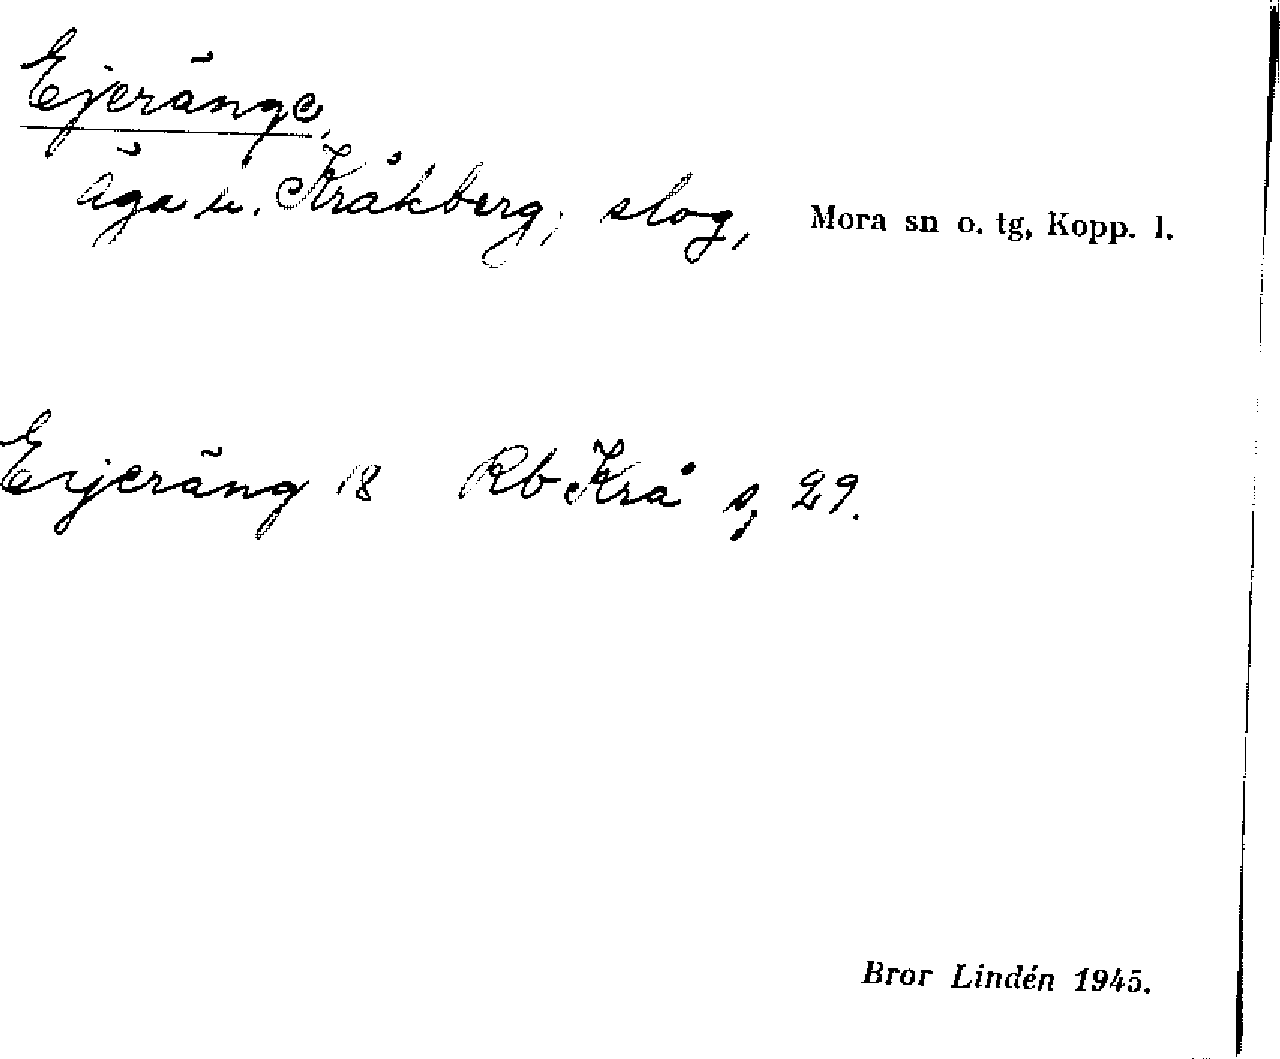 Ejeränge,
Äga u. Kråkberg, slog, Mora sn o. tg, Kopp. l.
Erjeräng 18 Rb Krå s, 29.
Bror Lindén 1945.